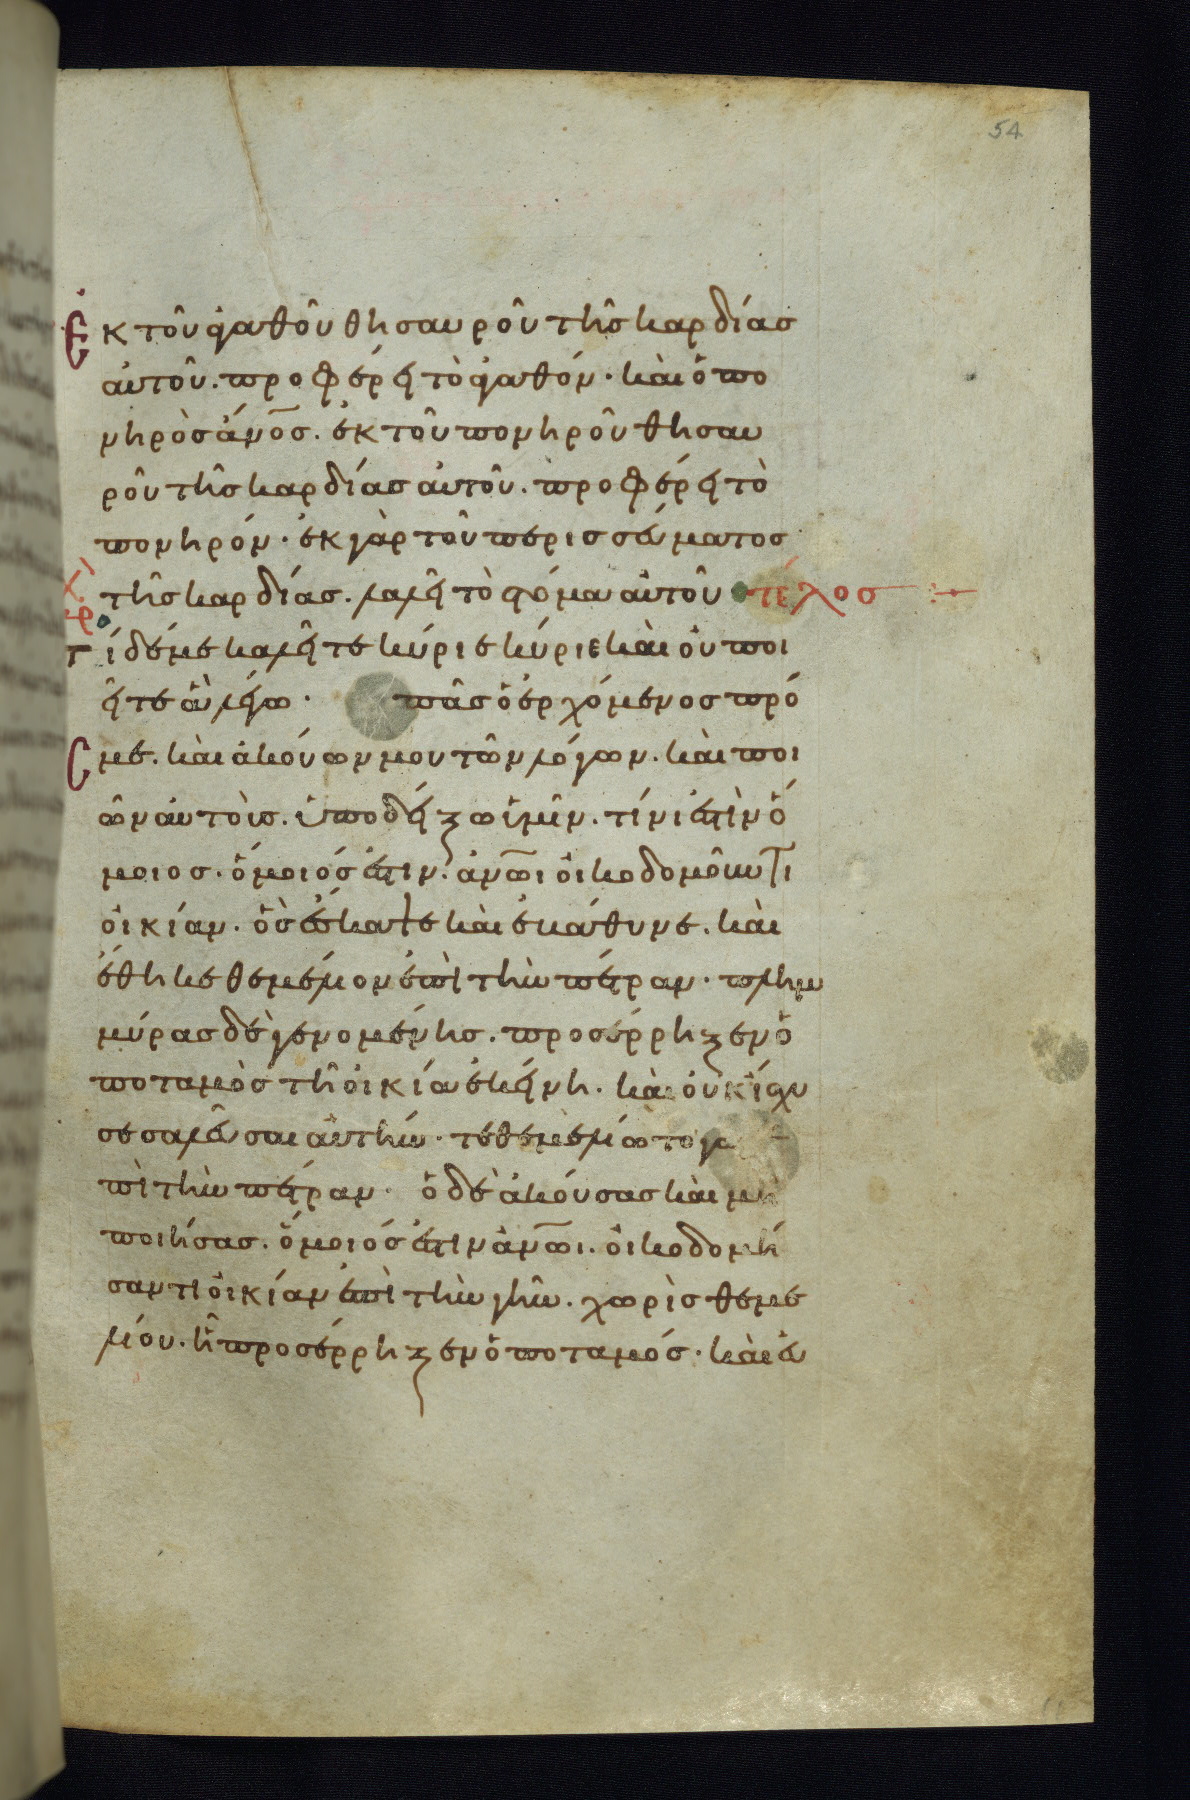 54
ἐκ τοῦ ἀγαθοῦ θησαυροῦ τῆς καρδίας
αὐτοῦ. προφέρει τὸ ἀγαθόν· καὶ ὁ πο
νηρὸς ἄνος. ἐκ τοῦ πονηροῦ θησαυ
ροῦ τῆς καρδίας αὐτοῦ. προφέρει τὸ
πονηρόν· ἐκ γὰρ τοῦ περισσεύματος
τῆς καρδίας. λαλεῖ τὸ στόμα αὐτοῦ τέλος
τί δέ με καλεῖτε κύριε κύριε καὶ οὐ ποι
εῖτε ἃ λέγω· πᾶς ὁ ἐρχόμενος πρό
με. καὶ ἀκούων μου τῶν λόγων. καὶ ποι
ῶν αὐτοὺς. ὑποδείξω ὑμῖν. τίνι ἐστὶν ὅ
μοιος. ὅμοιός ἐστιν ἀνωι οἰκοδομοῦντι
οἰκίαν. ὃς ἔσκαψε καὶ ἐβάθυνε. καὶ
ἔθηκε θεμέλιον ἐπὶ τὴν πέτραν· πλημ
μύρας δὲ γενομένης. προσέρρηξεν ὁ
ποταμὸς τῆ οἰκία ἐκείνη. καὶ οὐκ ἴσχυ
σε σαλεῦσαι αὐτήν· τεθεμελίωτο γὰ
πὶ τὴν πέτραν· ὁ δὲ ἀκούσας καὶ μὴ
ποιήσας. ὅμοιός ἐστιν ἀνωι. οἰκοδομή
σαντι οἰκίαν ἐπὶ τὴν γῆν. χωρὶς θεμε
λίου. ἧ προσέρρηξεν ὁ ποταμός· καὶ εὐ